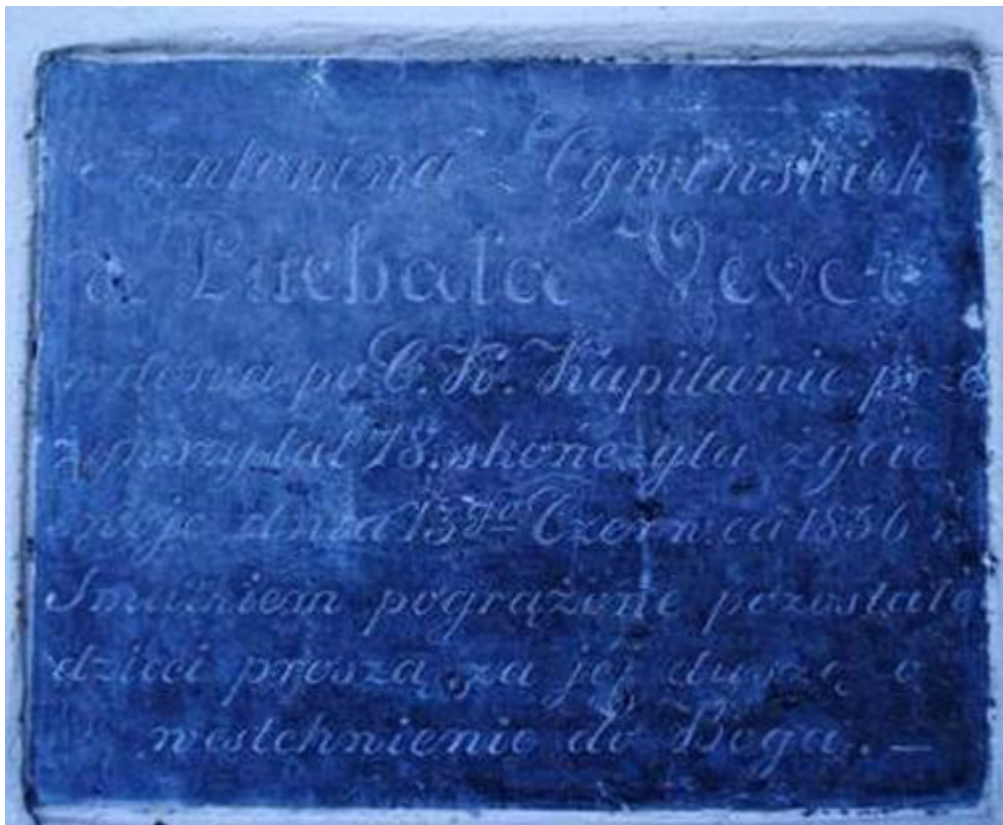 a Puchała Vevet
wdowa po C. K. Kapitanie prze
żywszy lat 78. skończyła życie
swoje dnia 13go Czerwca 1856 r.
Smutkiem pogrążone pozostałe
dzieci proszą za jej duszę o
westchnienie do Boga. —